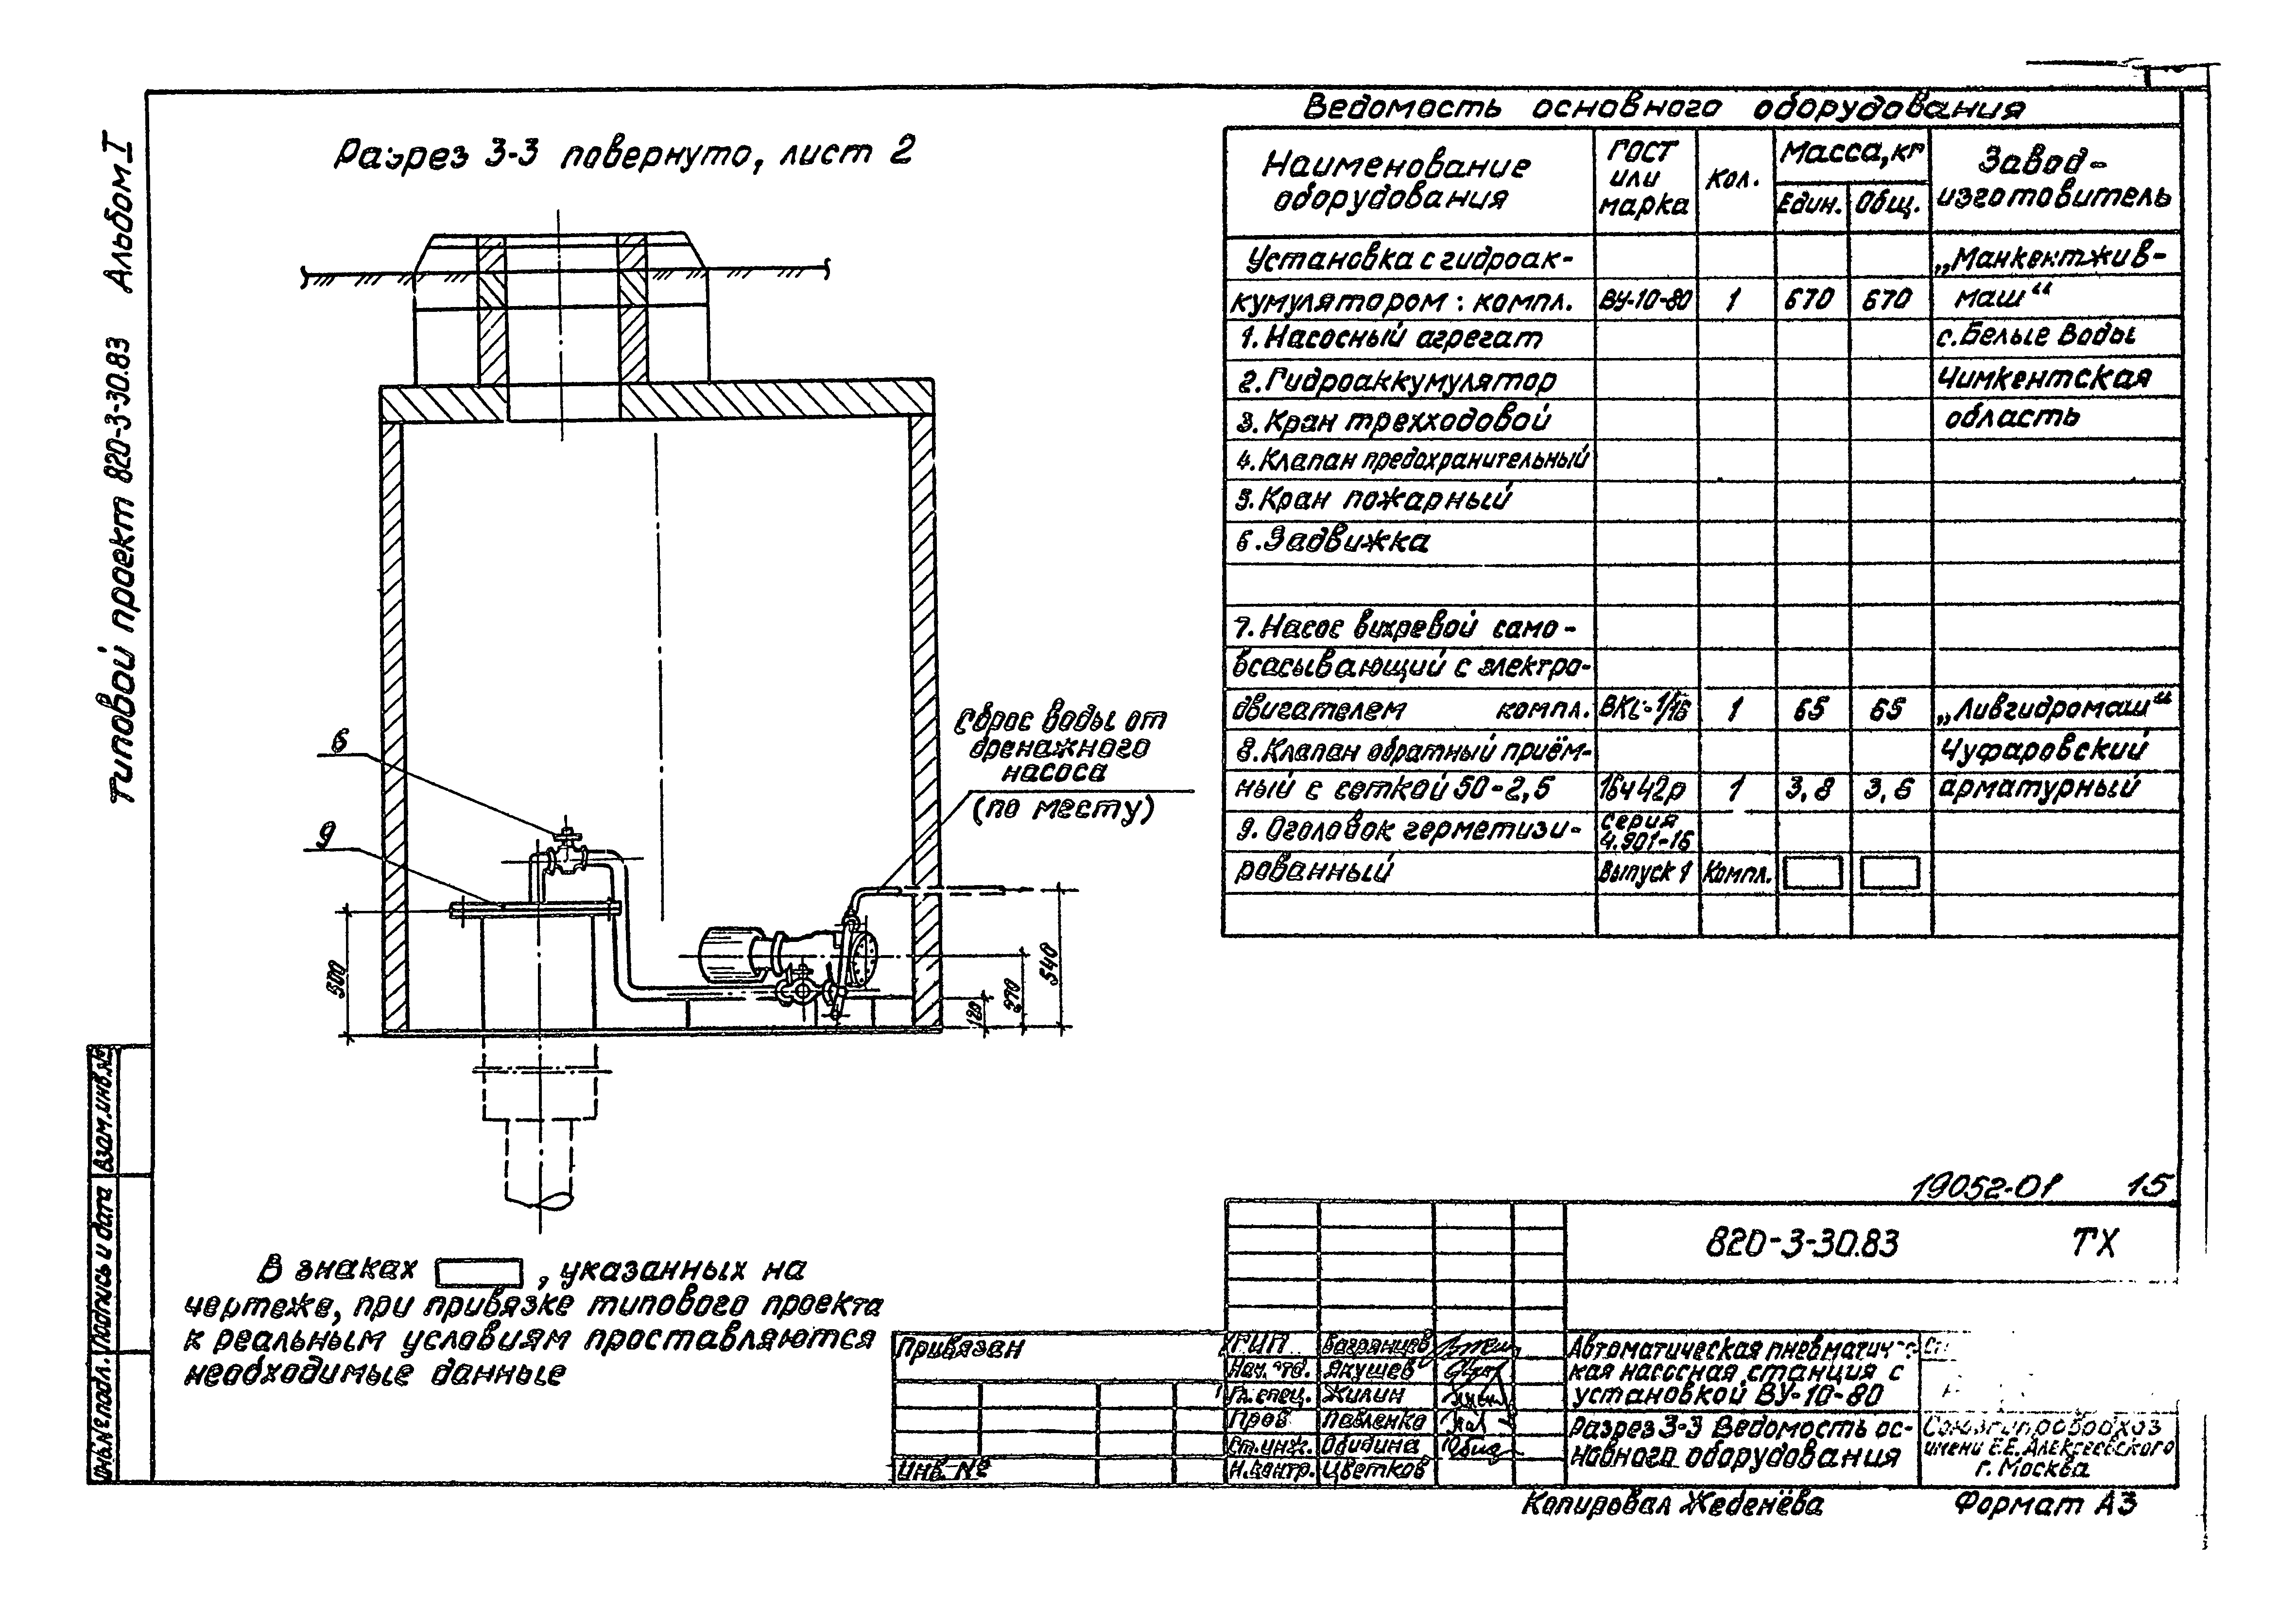 Типовой проект 820-3-30.83 Альбом I
Разрез 3-3 повернуто, лист 2
6
9
500
Сброс воды от
дренажного
насоса
(по месту)
120
270
540
В знаках , указанных на
чертеже, при привязке типового проекта
к реальным условиям проставляются
необходимые данные
Ведомость основного оборудования
Наименование оборудования ГОСТ или марка Кол. Масса, кг Един. Общ. Завод-изготовитель
Установка с гидроак- „Манкентжив-
кумулятором: компл. ВУ-10-80 1 670 670 маш“
1. Насосный агрегат с. Белые Воды
2. Гидроаккумулятор Чимкентская
3. Кран трехходовой область
4. Клапан предохранительный
5. Кран пожарный
6. Задвижка
7. Насос вихревой само-
всасывающий с электро-
двигателем компл. ВКС-1/16 1 65 65 „Ливгидромаш“
8. Клапан обратный приём- Чуфаровский
ный с сеткой 50-2,5 16ч42р 1 3,8 3,6 арматурный
9. Оголовок герметизи- серия 4.901-16
рованный Выпуск 1 Компл.
19052-01 15
820-3-30.83 ТХ
Привязан
Инв. №
ГИП Багрянцев
Нач. отд. Якушев
Гл. спец. Жилин
Пров Павленко
Ст. инж. Обидина
Н. контр. Цветков
Автоматическая пневматичес-
кая насосная станция с
установкой ВУ-10-80
Разрез 3-3 Ведомость ос-
новного оборудования
Союзгипроводхоз
имени Е.Е. Алексеевского
г. Москва
Копировал Жеденёва Формат А3
Инв. № подл. Подпись и дата Взам. инв. №